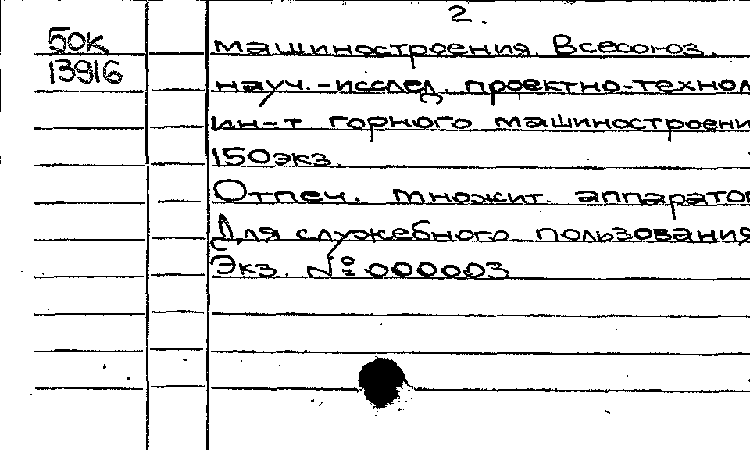 2.
50К
машиностроения. Всесоюз.
13916
науч.-исслед. проектно-технол
ин-т горного машиностроени
150экз.
Отпеч. множит. аппарато
Для служебного пользования
Экз. № 000003